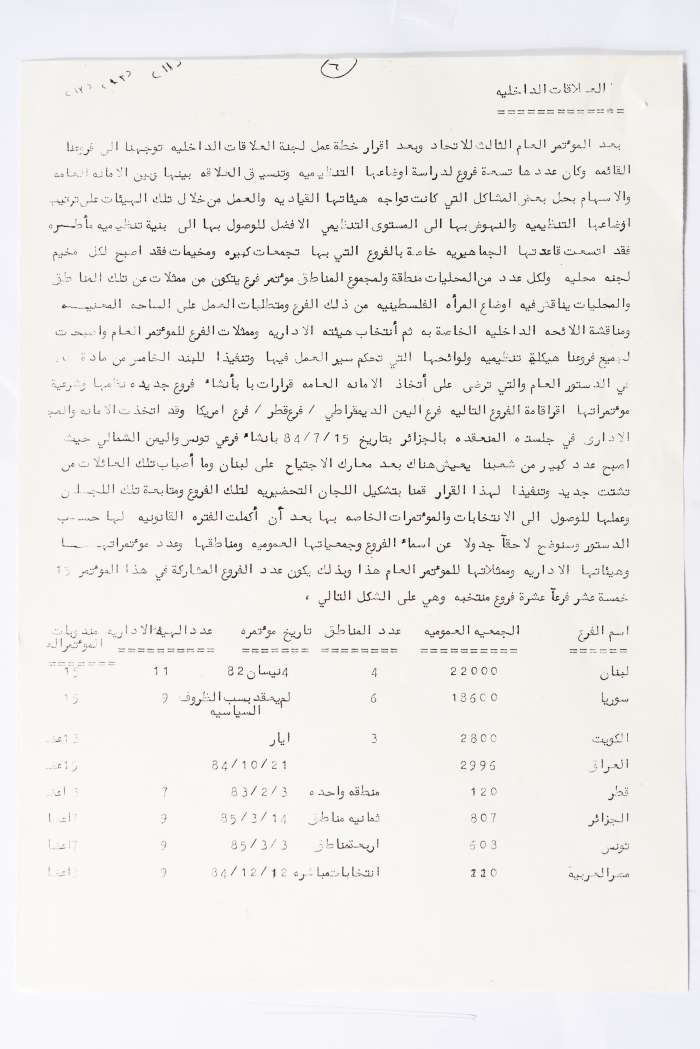 ٦
(١١)
العلاقات الداخليه
بعد الموتمر العام الثالث للاتحاد وبعد اقرار خطة عمل لجنة العلاقات الداخليه توجهنا الى فروعنا
القائمه وكان عددها تسعة فروع لدراسة اوضاعها التنظيميه وتنسيق العلاقه بينها وبين الامانه العامه
والاسهام بحل بعض المشاكل التي كانت تواجه هيئاتها القياديه والعمل من خلال تلك الهيئات على ترتيب
اوضاعها التنظيميه والنهوض بها الى المستوى التنظيمي الافضل للوصول بها الى بنية تنظيميه مأطره
فقد اتسعت قاعدتها الجماهيريه خاصة بالفروع التي بها تجمعات كبيره ومخيمات فقد اصبح لكل مخيم
لجنه محليه ولكل عدد من المحليات منطقة ولمجموع المناطق موتمر فرع يتكون من ممثلات عن تلك المناطق
والمحليات يناقش فيه اوضاع المرأه الفلسطينيه من ذلك الفرع ومتطلبات العمل على الساحه المعنيه
ومناقشة اللائحه الداخليه الخاصة به ثم أنتخاب هيئته الاداريه وممثلات الفرع للموتمر العام واصبحت
لجميع فروعنا هيكلة تنظيميه ولوائحها التي تحكم سير العمل فيها وتنفيذا للبند الخامس من مادة
في الدستور العام والتي ترضى على أتخاذ الامانه العامه قرارات با بأنشاء فروع جديده نظامها وشرعية
موتمراتها اقراقامة الفروع التاليه فرع اليمن الديمقراطي / فرع قطر / فرع امريكا وقد اتخذت الامانه والمج
الادارى في جلسته المنعقده بالجزائر بتاريخ 84/7/15 بانشاء فرعي تونس واليمن الشمالي حيث
اصبح عدد كبير من شعبنا يعيش هناك بعد معارك الاجتياح على لبنان وما أصباب تلك العائلات من
تشتت جديد وتنفيذا لهذا القرار قمنا بتشكيل اللجان التحضيريه لتلك الفروع ومتابعة تلك اللجان
وعملها للوصول الى الانتخابات والموتمرات الخاصه بها بعد أن أكملت الفتره القانونيه لها حسب
الدستور وسنوضح لاحقاً جدولا عن اسماء الفروع وجمعياتها العموميه ومناطقها وعدد موتمراتها
وهيئاتها الاداريه وممثلاتها للموتمر العام هذا وبذلك يكون عدد الفروع المشاركة في هذا الموتمر 15
خمسة عشر فرعاً عشرة فروع منتخبه وهي على الشكل التالي ،
اسم الفرع الجمعيه العموميه عدد المناطق تاريخ موتمره عدد الهيئة الاداريه مندوبات الموتمر
لبنان 22000 4 4نيسان 82 11 15
سوريا 18600 6 لم يعقد بسب الظروف السياسيه 9 15
الكويت 2800 3 ايار 13
العراق 2996 84/10/21 15
قطر 120 منطقه واحده 83/2/3 7 3
الجزائر 807 ثمانيه مناطق 85/3/14 9 7
تونس 603 اربعة مناطق 85/3/3 9 7
مصر العربية 220 انتخابات مباشره 84/12/12 9